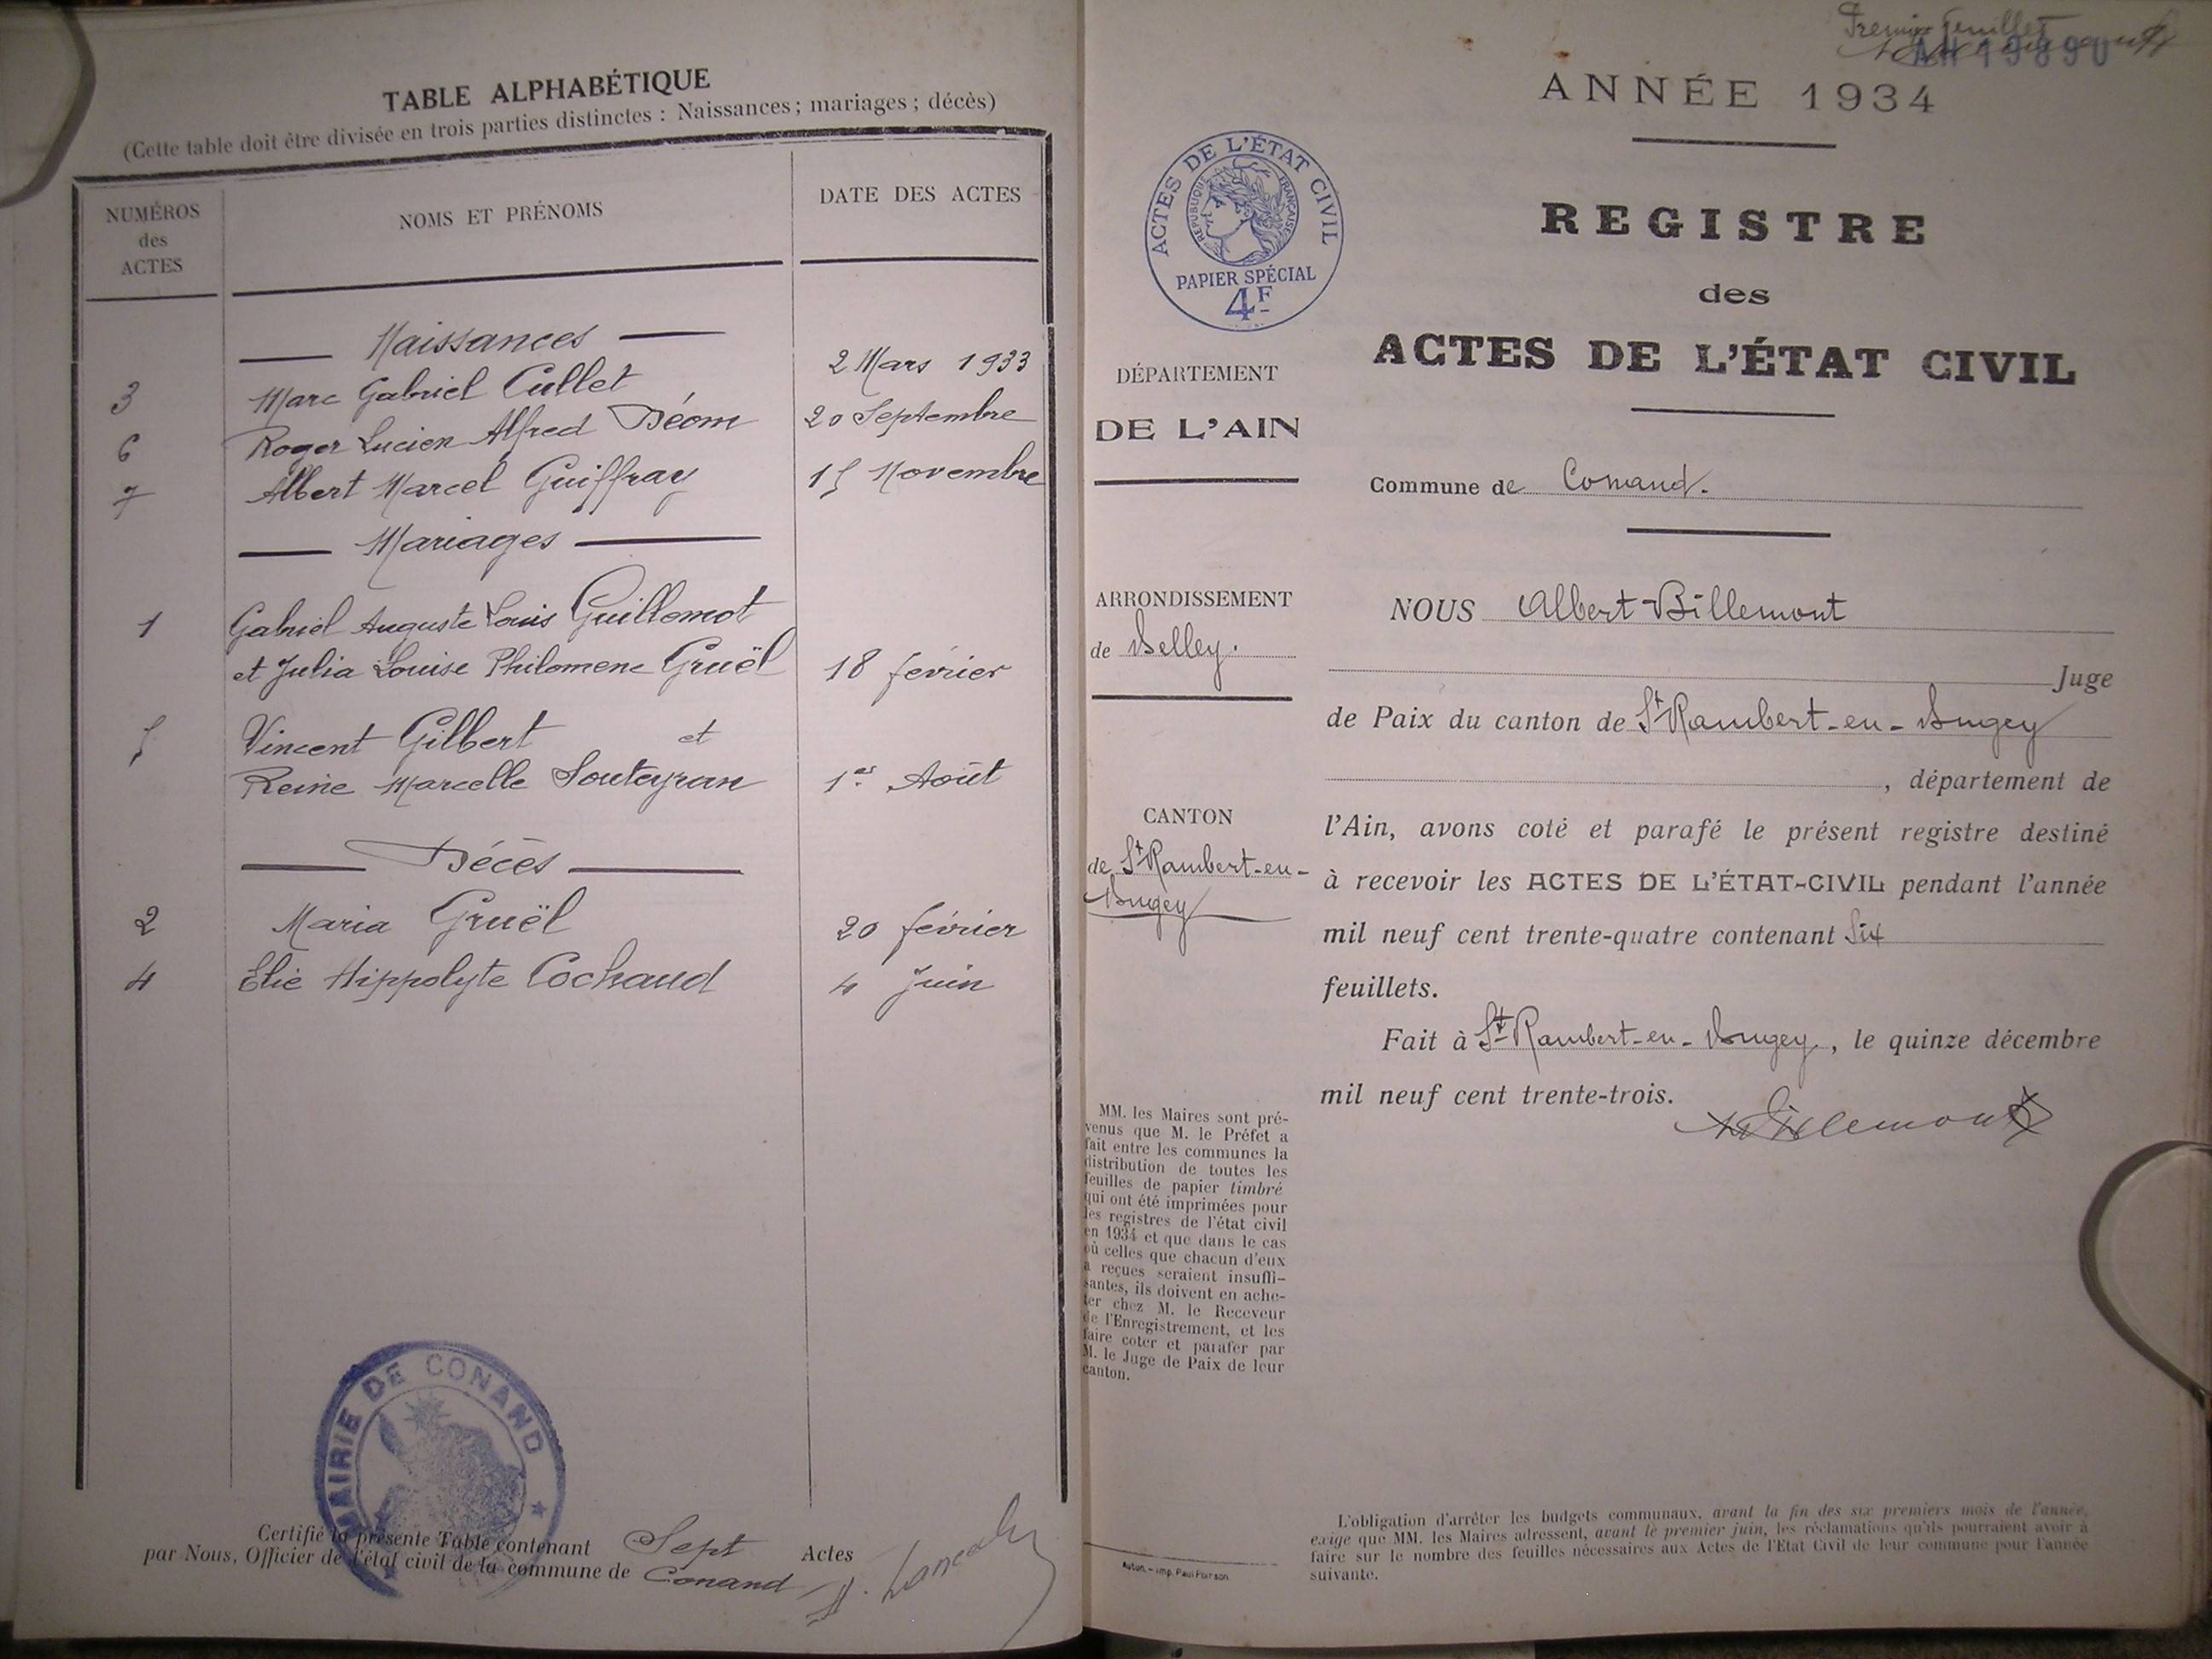 TABLE ALPHABÉTIQUE
(Cette table doit être divisée en trois parties distinctes : Naissances ; mariages ; décès)
NUMÉROS
des
ACTES
NOMS ET PRÉNOMS
DATE DES ACTES
Naissances
3 Marc Gabriel Cullet 2 Mars 1933
6 Roger Lucien Alfred Déom 20 Septembre
7 Albert Marcel Guiffray 15 Novembre
Mariages
1 Gabriel Auguste Louis Guillemot
et Julia Louise Philomene Gruël 18 février
5 Vincent Gilbert et
Reine Marcelle Souteyran 1er Août
Décès
2 Maria Gruël 20 février
4 Elie Hippolyte Cochaud 4 Juin
MAIRIE DE CONAND
Certifié la présente Table contenant Sept Actes
par Nous, Officier de l'état civil de la commune de Conand
Premier feuillet
AH 19890
ANNÉE 1934
ACTES DE L'ÉTAT CIVIL
RÉPUBLIQUE FRANÇAISE
PAPIER SPÉCIAL
4F
REGISTRE
des
ACTES DE L'ÉTAT CIVIL
DÉPARTEMENT
DE L'AIN
Commune de Conand.
ARRONDISSEMENT
de Belley.
CANTON
de St Rambert-en-
Bugey
NOUS Albert Billemont
Juge
de Paix du canton de St Rambert-en-Bugey
, département de
l'Ain, avons coté et parafé le présent registre destiné
à recevoir les ACTES DE L'ÉTAT-CIVIL pendant l'année
mil neuf cent trente-quatre contenant six
feuillets.
Fait à St Rambert-en-Bugey, le quinze décembre
mil neuf cent trente-trois.
ABillemont
MM. les Maires sont pré-
venus que M. le Préfet a
fait entre les communes la
distribution de toutes les
feuilles de papier timbré
qui ont été imprimées pour
les registres de l'état civil
en 1934 et que dans le cas
où celles que chacun d'eux
a reçues seraient insuffi-
santes, ils doivent en ache-
ter chez M. le Receveur
de l'Enregistrement, et les
faire coter et parafer par
M. le Juge de Paix de leur
canton.
L'obligation d'arrêter les budgets communaux, avant la fin des six premiers mois de l'année,
exige que MM. les Maires adressent, avant le premier juin, les réclamations qu'ils pourraient avoir à
faire sur le nombre des feuilles nécessaires aux Actes de l'Etat Civil de leur commune pour l'année
suivante.